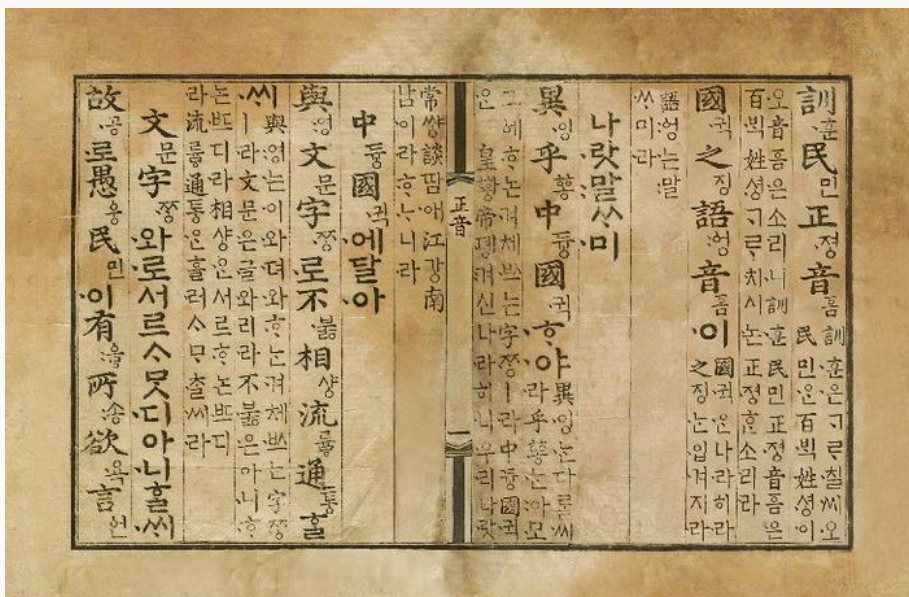 訓·훈民민正·졍音ᅙᅳᆷ 訓·훈은ᄀᆞᄅᆞ·칠씨오
民민ᄋᆞᆫ百·ᄇᆡᆨ姓·셩·이
오音ᅙᅳᆷ은소리니訓·훈民민正·졍音ᅙᅳᆷ은
百·ᄇᆡᆨ姓·셩ᄀᆞᄅᆞ·치시논正·졍ᄒᆞᆫ소리라
國·귁之징語:엉音ᅙᅳᆷ·이 國·귁은나라히라
之징는입겨지라
語:엉는말
ᄊᆞ미라
나·랏:말ᄊᆞ·미
異·잉乎ᅘᅩᆼ中듕國·귁·ᄒᆞ·야 異·잉는다ᄅᆞᆯ씨
라乎ᅘᅩᆼ는아모
그ᅌᅦᄒᆞ논겨체ᄡᅳ는字·ᄍᆞᆼㅣ라中듕國·귁
은皇ᅘᅪᆼ帝·뎽겨신나라히니우리나랏
正音 一
常쌍談땀애江강南
남이라ᄒᆞᄂᆞ니라
中듕國·귁·에달·아
與:영文문字·ᄍᆞᆼ·로不·부ᇙ相샹流류ᇢ通통ᄒᆞᆯ
·ᄊᆡ 與:영는이와뎌와ᄒᆞ는겨체ᄡᅳ는字·ᄍᆞᆼ
ㅣ라文문은글와리라不·부ᇙ은아니ᄒᆞ
논ᄠᅳ디라相샹ᄋᆞᆫ서르ᄒᆞ논ᄠᅳ디
라流류ᇢ通통ᄋᆞᆫ흘러ᄉᆞᄆᆞᄎᆞᆯ씨라
文문字·ᄍᆞᆼ·와·로서르ᄉᆞᄆᆞᆺ·디아·니ᄒᆞᆯ·ᄊᆡ
故·공·로愚웅民민·이有:우ᇢ所:송欲·욕言언